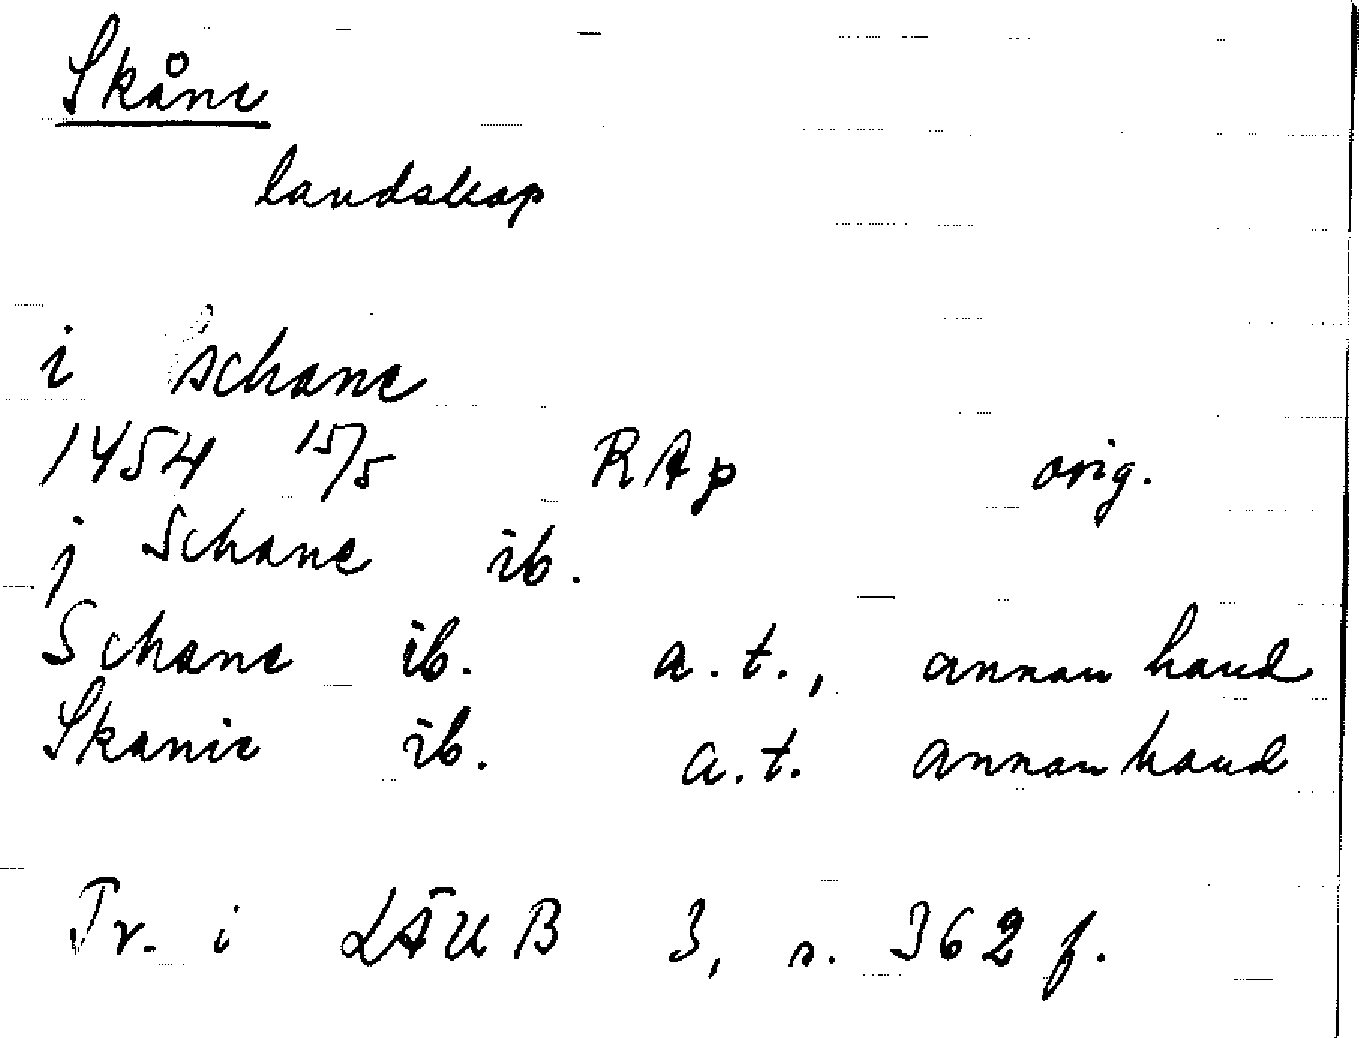 Skåne
landskap
i schane
1454 15/5 RAp orig.
j Schane ib.
Schane ib. a.t., annan hand
Skanie ib. a.t. annan hand
Tr. i LÄUB 3, s. 362 f.